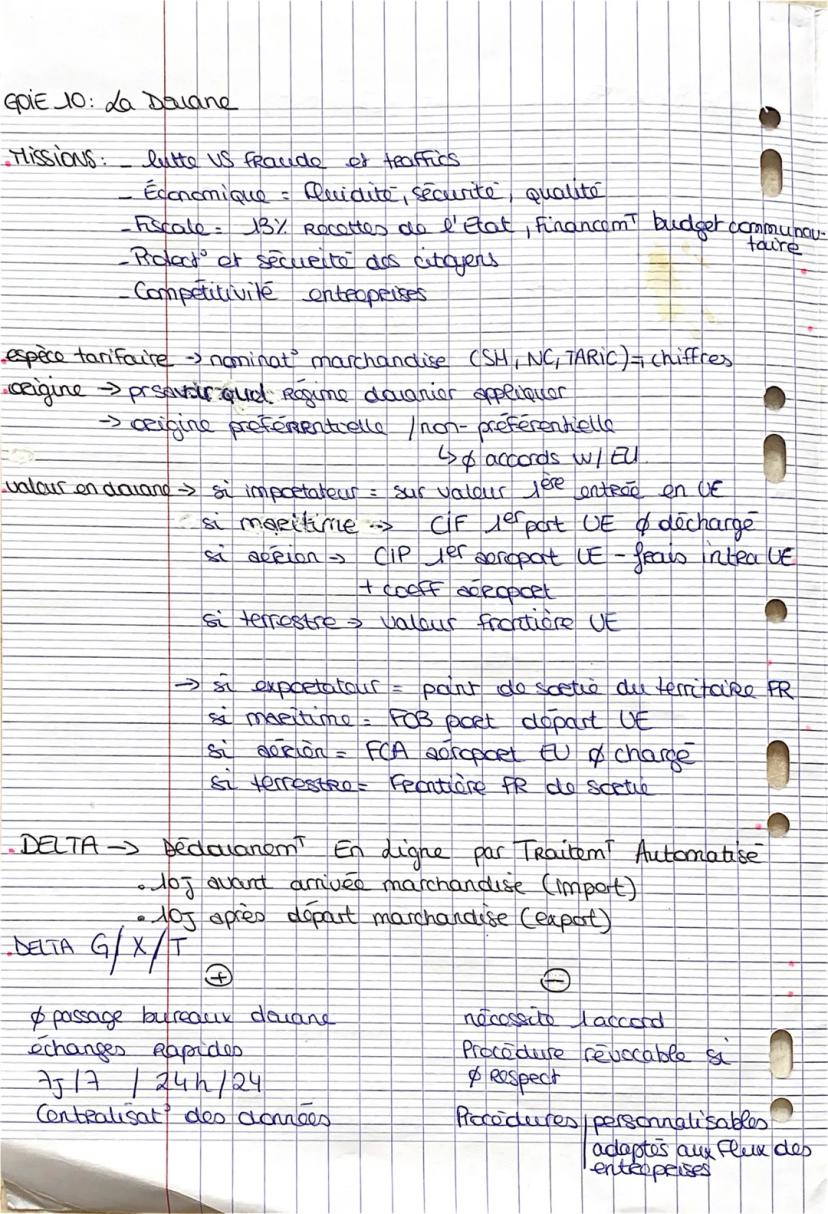 GPIE 10: La Douane
.Missions: - lutte VS fraude et traffics
- Économique = fluidité, sécurité, qualité
- Fiscale = 13% Recettes de l'État, financemT budget communau-
taire
- Protect° et sécurité des citoyens
- Compétitivité entreprises
.espèce tarifaire → nominat° marchandise (SH, NC, TARIC) = chiffres
.origine → pr savoir quel Régime douanier appliquer
→ origine préférentielle / non-préférentielle
↳ ϕ accords W/ EU
.valeur en douane → si importateur = sur valeur 1ère entrée en UE
si maritime → CIF 1er port UE ϕ déchargé
si aérien → CIP 1er aéroport UE - frais intra UE
+ coeff aéroport
si terrestre → valeur frontière UE
→ si exportateur = point de sortie du territoire FR
si maritime = FOB port départ UE
si aérien = FCA aéroport EU ϕ chargé
si terrestre = Frontière FR de sortie
. DELTA → DédouanemT En Ligne par TraitemT Automatisé
• 10J avant arrivée marchandise (import)
• 10J après départ marchandise (export)
.DELTA G/X/T
+ -
ϕ passage bureaux douane
échanges Rapides
7J/7 / 24h/24
Centralisat° des données
nécessite l accord
Procédure révocable si
ϕ Respect
Procédures personnalisables
adaptés aux flux des
entreprises